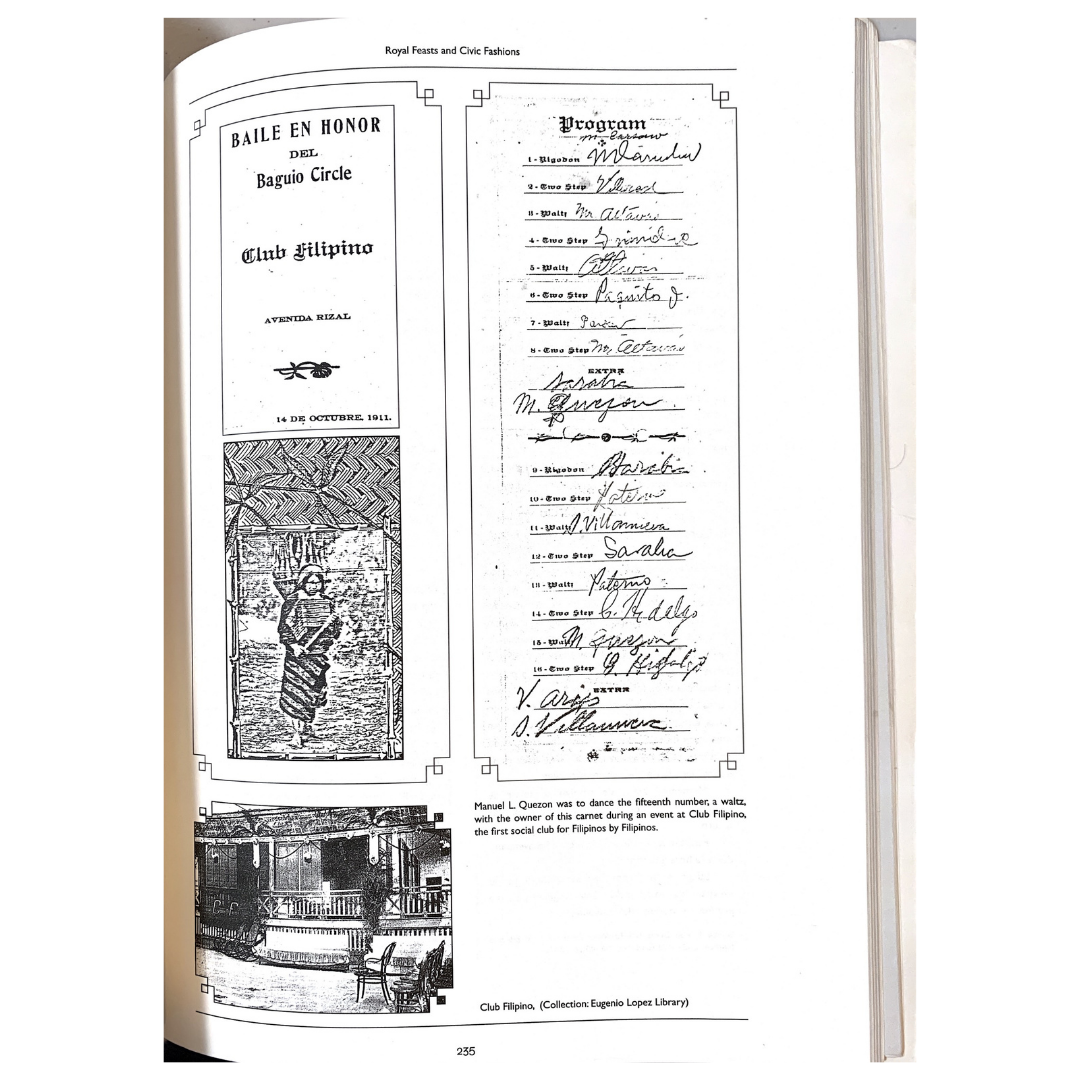 Royal Feasts and Civic Fashions
BAILE EN HONOR
DEL
Baguio Circle
Club Filipino
AVENIDA RIZAL
14 DE OCTUBRE, 1911.
Program
1-Rigodon
2-Two Step
3-Waltz Mr Altavas
4-Two Step
5-Waltz Altavas
6-Two Step Paquito J.
7-Waltz
8-Two Step Mr. Altavas
EXTRA
Sarabia
M. Quezon
9-Rigodon Sarabia
10-Two Step Paterno
11-Waltz S. Villanueva
12-Two Step Sarabia
13-Waltz Paterno
14-Two Step C. Hidalgo
15-Waltz M. Quezon
16-Two Step G. Hidalgo
EXTRA
V.
S. Villanueva
Manuel L. Quezon was to dance the fifteenth number, a waltz,
with the owner of this carnet during an event at Club Filipino,
the first social club for Filipinos by Filipinos.
Club Filipino, (Collection: Eugenio Lopez Library)
235